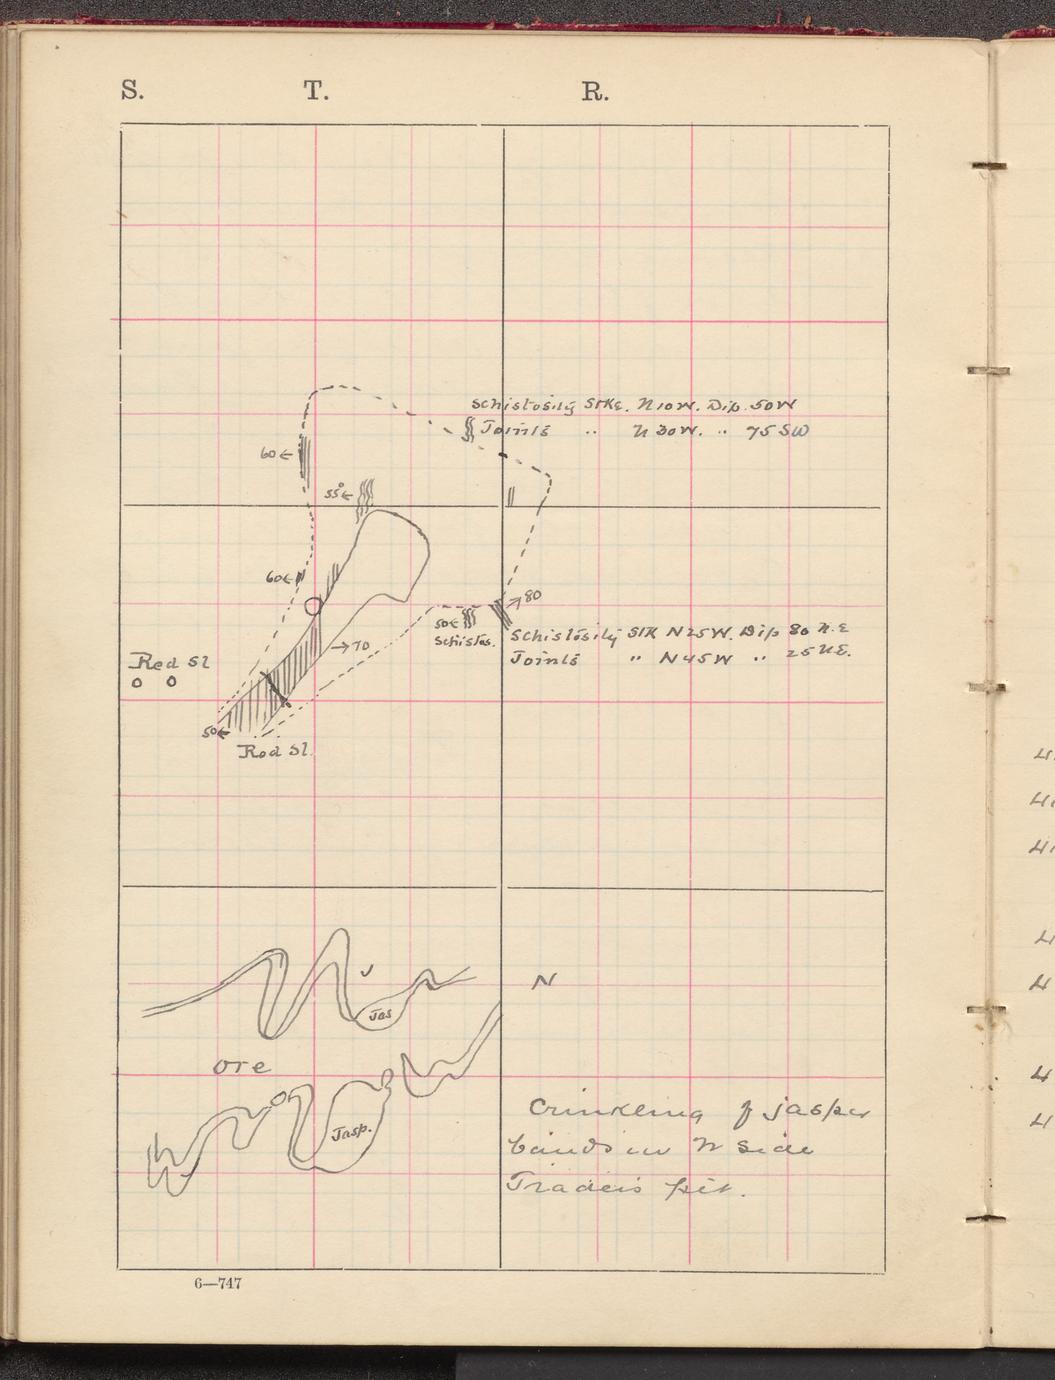 S. T. R.
Schistosity Stke. N10W. Dip. 50W
Joints " N30W. " 75SW
60
55°
60
80
50
Schistos.
Schistosity Stk N25W. Dip 80 N.E
Joints " N45W " 25 N.E.
70
Red Sl
50
Red Sl.
J
Jas
N
ore
Jasp.
Crinkling of jasper
bands in N side
Traders pit.
6—747
4
4
4
4
4
4
4